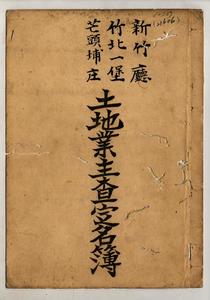 新竹廳
竹北一堡
芒頭埔庄
土地業主查定名簿